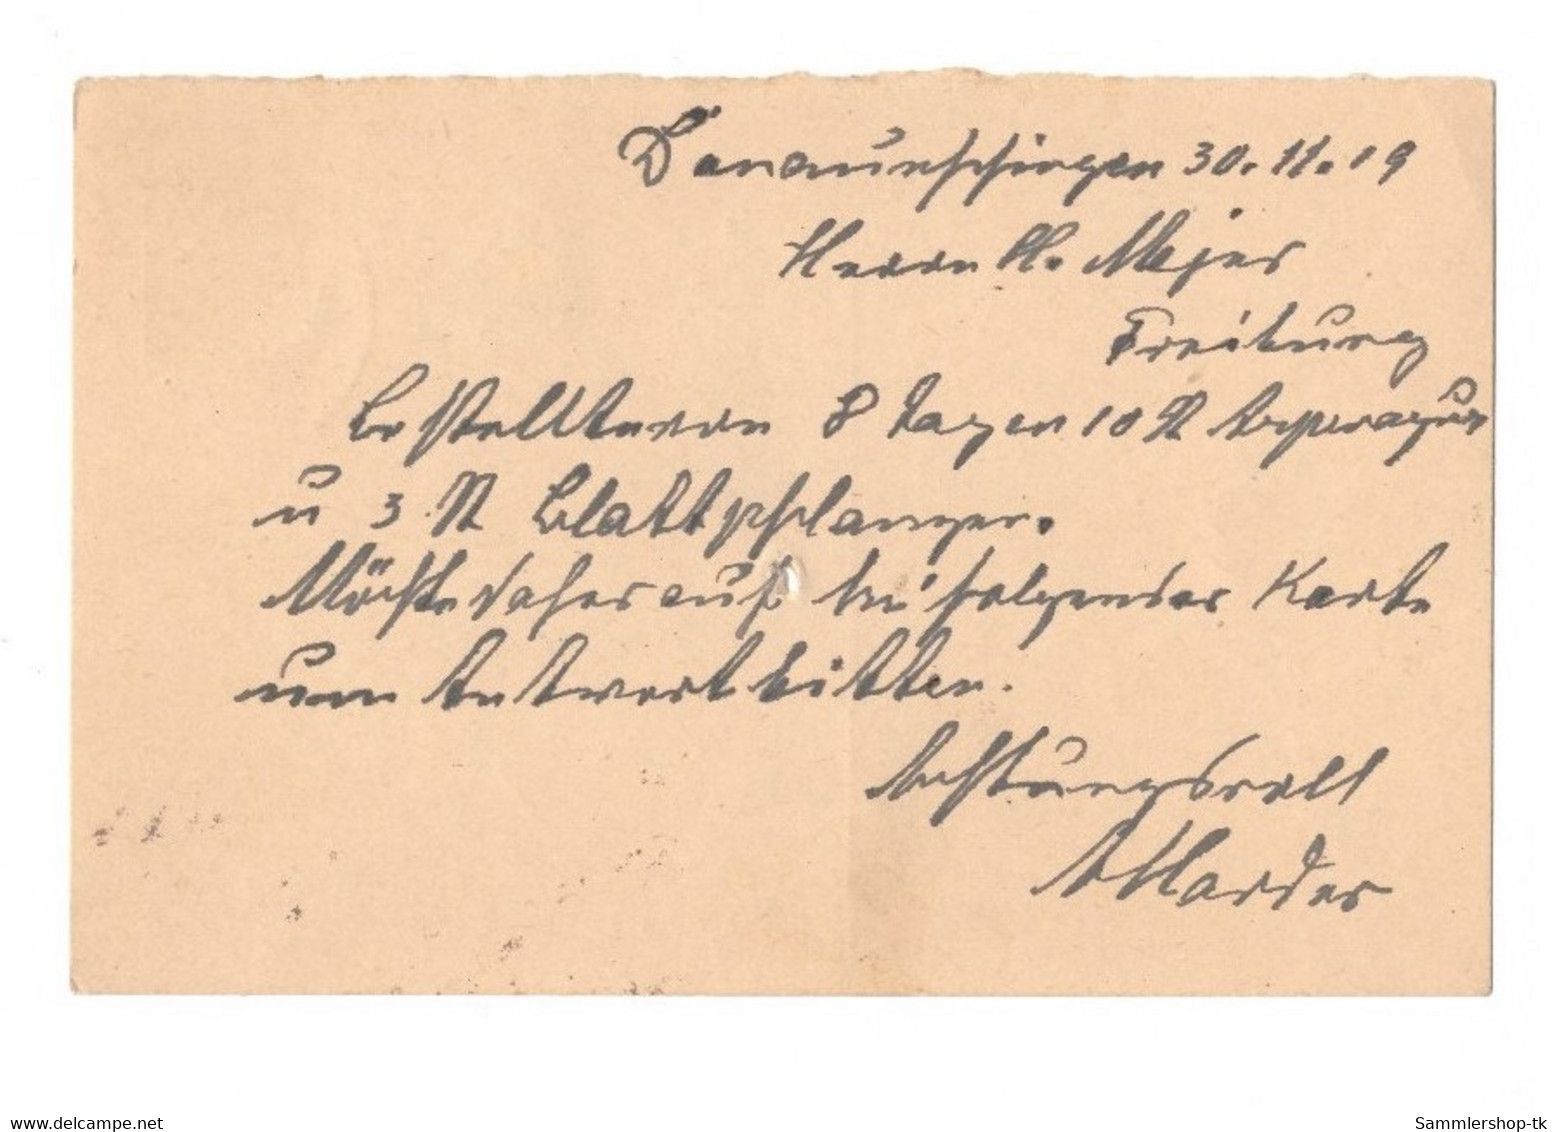 Donaueschingen 30.11.19
Herrn H. Mejer
Freiburg
Bestellte vor 8 Tagen 10 St
u 3 St Blattpflanzen.
Möchte daher auf beifolgender Karte
um Antwort bitten.
Achtungsvoll
A Harder
www.delcampe.net
Sammlershop-tk